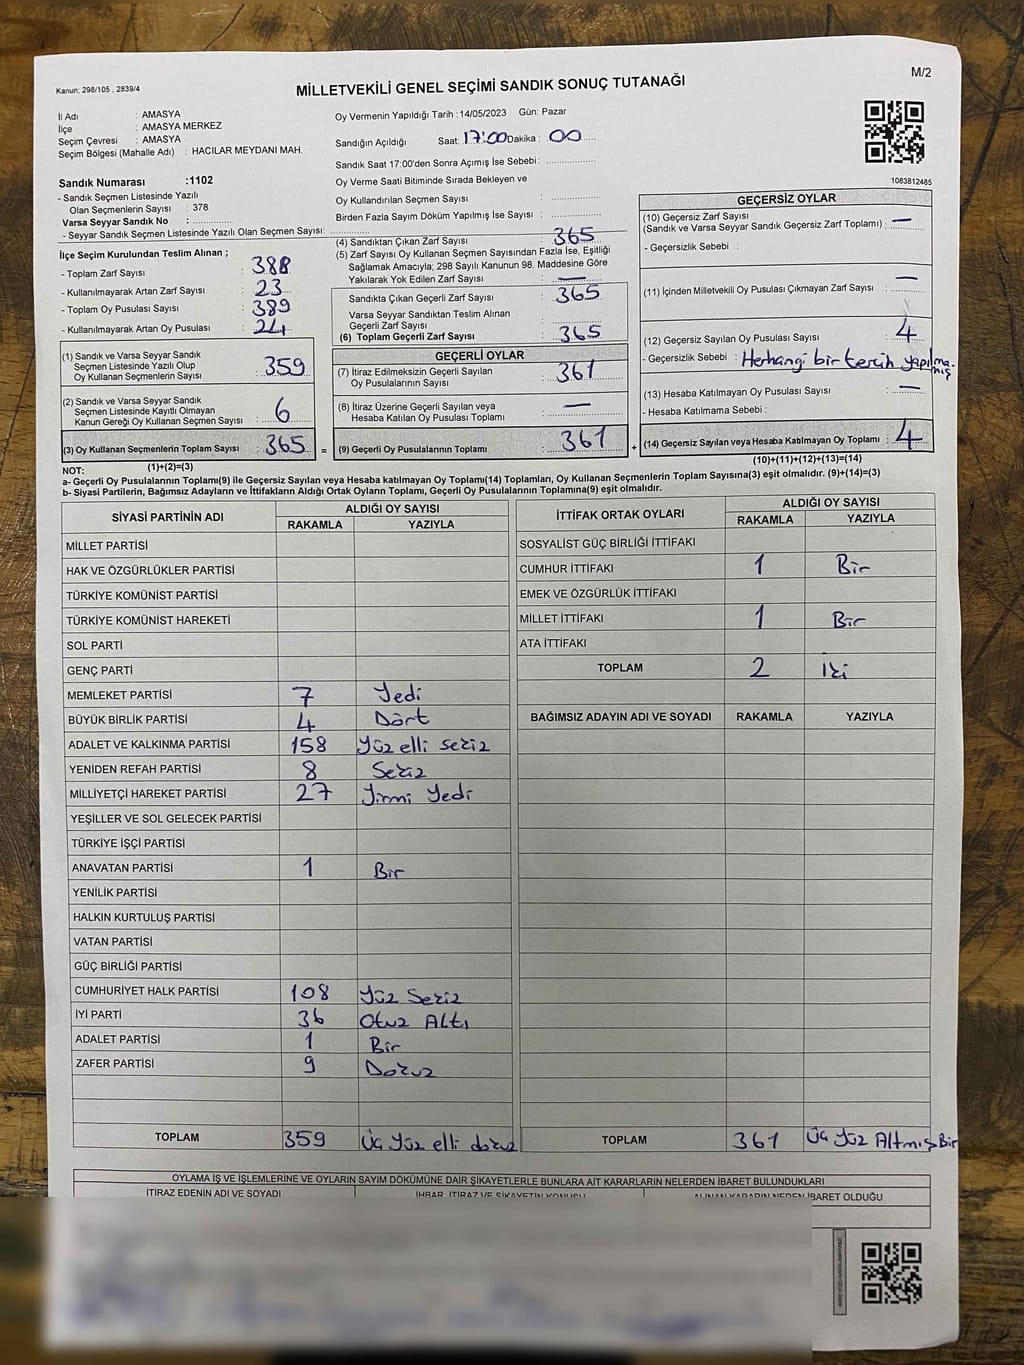 Kanun; 298/105 , 2839/4
MİLLETVEKİLİ GENEL SEÇİMİ SANDIK SONUÇ TUTANAĞI
M/2
İl Adı : AMASYA
İlçe : AMASYA MERKEZ
Seçim Çevresi : AMASYA
Seçim Bölgesi (Mahalle Adı) : HACILAR MEYDANI MAH.
Oy Vermenin Yapıldığı Tarih :14/05/2023 Gün: Pazar
Sandığın Açıldığı Saat: 17:00 Dakika : 00
Sandık Saat 17:00'den Sonra Açmış İse Sebebi:
Oy Verme Saati Bitiminde Sırada Bekleyen ve
Oy Kullandırılan Seçmen Sayısı :
Birden Fazla Sayım Döküm Yapılmış İse Sayısı :
1083812485
Sandık Numarası :1102
- Sandık Seçmen Listesinde Yazılı
Olan Seçmenlerin Sayısı : 378
Varsa Seyyar Sandık No :
- Seyyar Sandık Seçmen Listesinde Yazılı Olan Seçmen Sayısı:
İlçe Seçim Kurulundan Teslim Alınan ;
- Toplam Zarf Sayısı : 388
- Kullanılmayarak Artan Zarf Sayısı : 23
- Toplam Oy Pusulası Sayısı : 389
- Kullanılmayarak Artan Oy Pusulası : 24
(1) Sandık ve Varsa Seyyar Sandık
Seçmen Listesinde Yazılı Olup
Oy Kullanan Seçmenlerin Sayısı : 359
(2) Sandık ve Varsa Seyyar Sandık
Seçmen Listesinde Kayıtlı Olmayan
Kanun Gereği Oy Kullanan Seçmen Sayısı : 6
(3) Oy Kullanan Seçmenlerin Toplam Sayısı : 365
(1)+(2)=(3)
(4) Sandıktan Çıkan Zarf Sayısı : 365
(5) Zarf Sayısı Oy Kullanan Seçmen Sayısından Fazla İse, Eşitliği
Sağlamak Amacıyla; 298 Sayılı Kanunun 98. Maddesine Göre
Yakılarak Yok Edilen Zarf Sayısı : —
Sandıkta Çıkan Geçerli Zarf Sayısı : 365
Varsa Seyyar Sandıktan Teslim Alınan
Geçerli Zarf Sayısı :
(6) Toplam Geçerli Zarf Sayısı : 365
GEÇERLİ OYLAR
(7) İtiraz Edilmeksizin Geçerli Sayılan
Oy Pusulalarının Sayısı : 361
(8) İtiraz Üzerine Geçerli Sayılan veya
Hesaba Katılan Oy Pusulası Toplamı : —
= (9) Geçerli Oy Pusulalarının Toplamı : 361
GEÇERSİZ OYLAR
(10) Geçersiz Zarf Sayısı
(Sandık ve Varsa Seyyar Sandık Geçersiz Zarf Toplamı) : —
- Geçersizlik Sebebi :
(11) İçinden Milletvekili Oy Pusulası Çıkmayan Zarf Sayısı : —
(12) Geçersiz Sayılan Oy Pusulası Sayısı : 4
- Geçersizlik Sebebi : Herhangi bir tercih yapılmamış
(13) Hesaba Katılmayan Oy Pusulası Sayısı : —
- Hesaba Katılmama Sebebi :
+ (14) Geçersiz Sayılan veya Hesaba Katılmayan Oy Toplamı : 4
(10)+(11)+(12)+(13)=(14)
NOT:
a- Geçerli Oy Pusulalarının Toplamı(9) ile Geçersiz Sayılan veya Hesaba Katılmayan Oy Toplamı(14) Toplamları, Oy Kullanan Seçmenlerin Toplam Sayısına(3) eşit olmalıdır. (9)+(14)=(3)
b- Siyasi Partilerin, Bağımsız Adayların ve İttifakların Aldığı Ortak Oyların Toplamı, Geçerli Oy Pusulalarının Toplamına(9) eşit olmalıdır.
SİYASİ PARTİNİN ADI ALDIĞI OY SAYISI
RAKAMLA YAZIYLA
MİLLET PARTİSİ
HAK VE ÖZGÜRLÜKLER PARTİSİ
TÜRKİYE KOMÜNİST PARTİSİ
TÜRKİYE KOMÜNİST HAREKETİ
SOL PARTİ
GENÇ PARTİ
MEMLEKET PARTİSİ 7 Yedi
BÜYÜK BİRLİK PARTİSİ 4 Dört
ADALET VE KALKINMA PARTİSİ 158 Yüz elli sekiz
YENİDEN REFAH PARTİSİ 8 Sekiz
MİLLİYETÇİ HAREKET PARTİSİ 27 Yirmi Yedi
YEŞİLLER VE SOL GELECEK PARTİSİ
TÜRKİYE İŞÇİ PARTİSİ
ANAVATAN PARTİSİ 1 Bir
YENİLİK PARTİSİ
HALKIN KURTULUŞ PARTİSİ
VATAN PARTİSİ
GÜÇ BİRLİĞİ PARTİSİ
CUMHURİYET HALK PARTİSİ 108 Yüz Sekiz
İYİ PARTİ 36 Otuz Altı
ADALET PARTİSİ 1 Bir
ZAFER PARTİSİ 9 Dokuz
TOPLAM 359 Üç Yüz elli dokuz
İTTİFAK ORTAK OYLARI ALDIĞI OY SAYISI
RAKAMLA YAZIYLA
SOSYALİST GÜÇ BİRLİĞİ İTTİFAKI
CUMHUR İTTİFAKI 1 Bir
EMEK VE ÖZGÜRLÜK İTTİFAKI
MİLLET İTTİFAKI 1 Bir
ATA İTTİFAKI
TOPLAM 2 İki
BAĞIMSIZ ADAYIN ADI VE SOYADI RAKAMLA YAZIYLA
TOPLAM 361 Üç Yüz Altmış Bir
OYLAMA İŞ VE İŞLEMLERİNE VE OYLARIN SAYIM DÖKÜMÜNE DAİR ŞİKAYETLERLE BUNLARA AİT KARARLARIN NELERDEN İBARET BULUNDUKLARI
İTİRAZ EDENİN ADI VE SOYADI İHBAR, İTİRAZ VE ŞİKAYETİN KONUSU ALINAN KARARIN NEDEN İBARET OLDUĞU